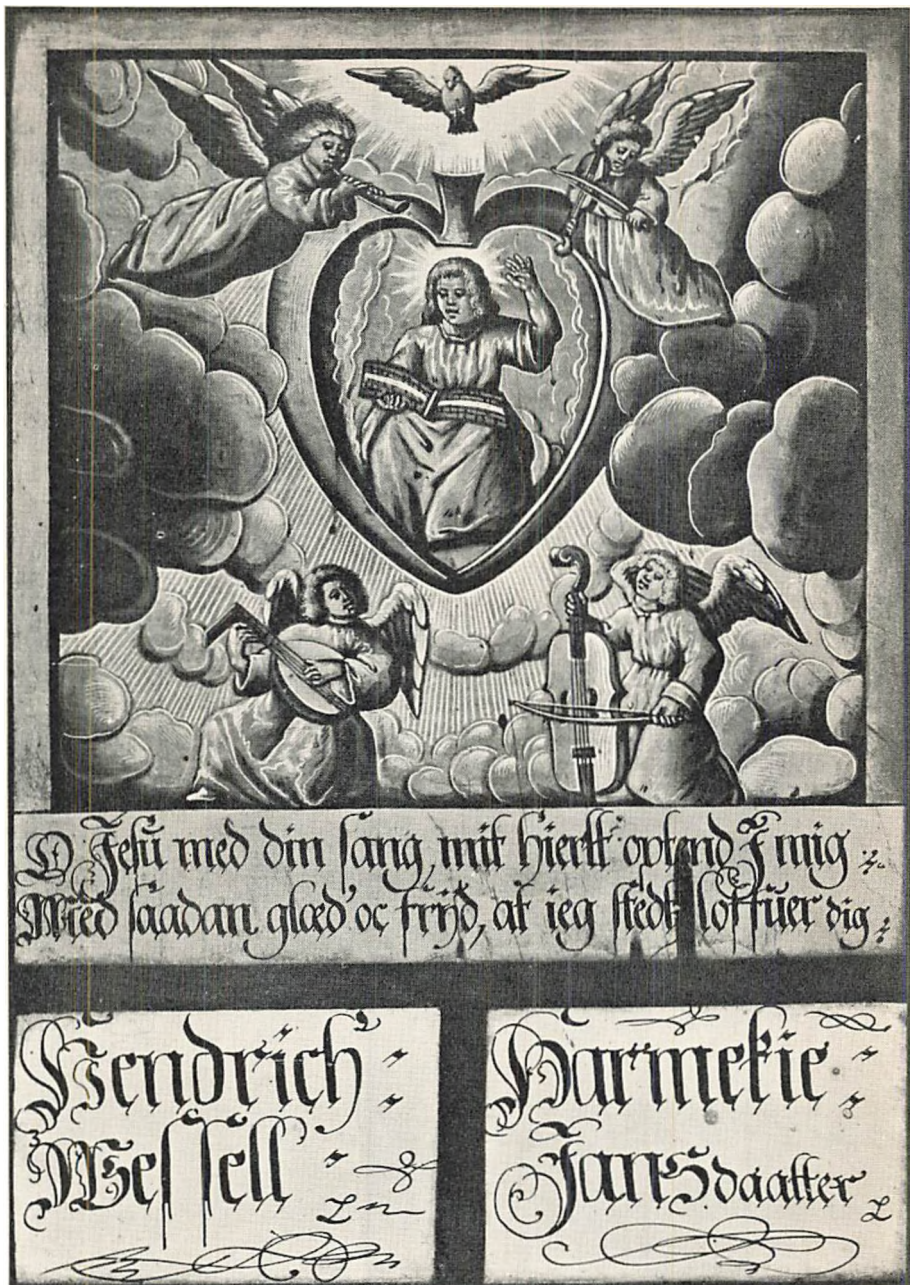 O Jesu med din sang, mit hiertt optend I mig
Med saadan glæd' oc fryd, at ieg stedtz loffuer dig
Hendrich
Wessell
Harmekie
Jansdaatter